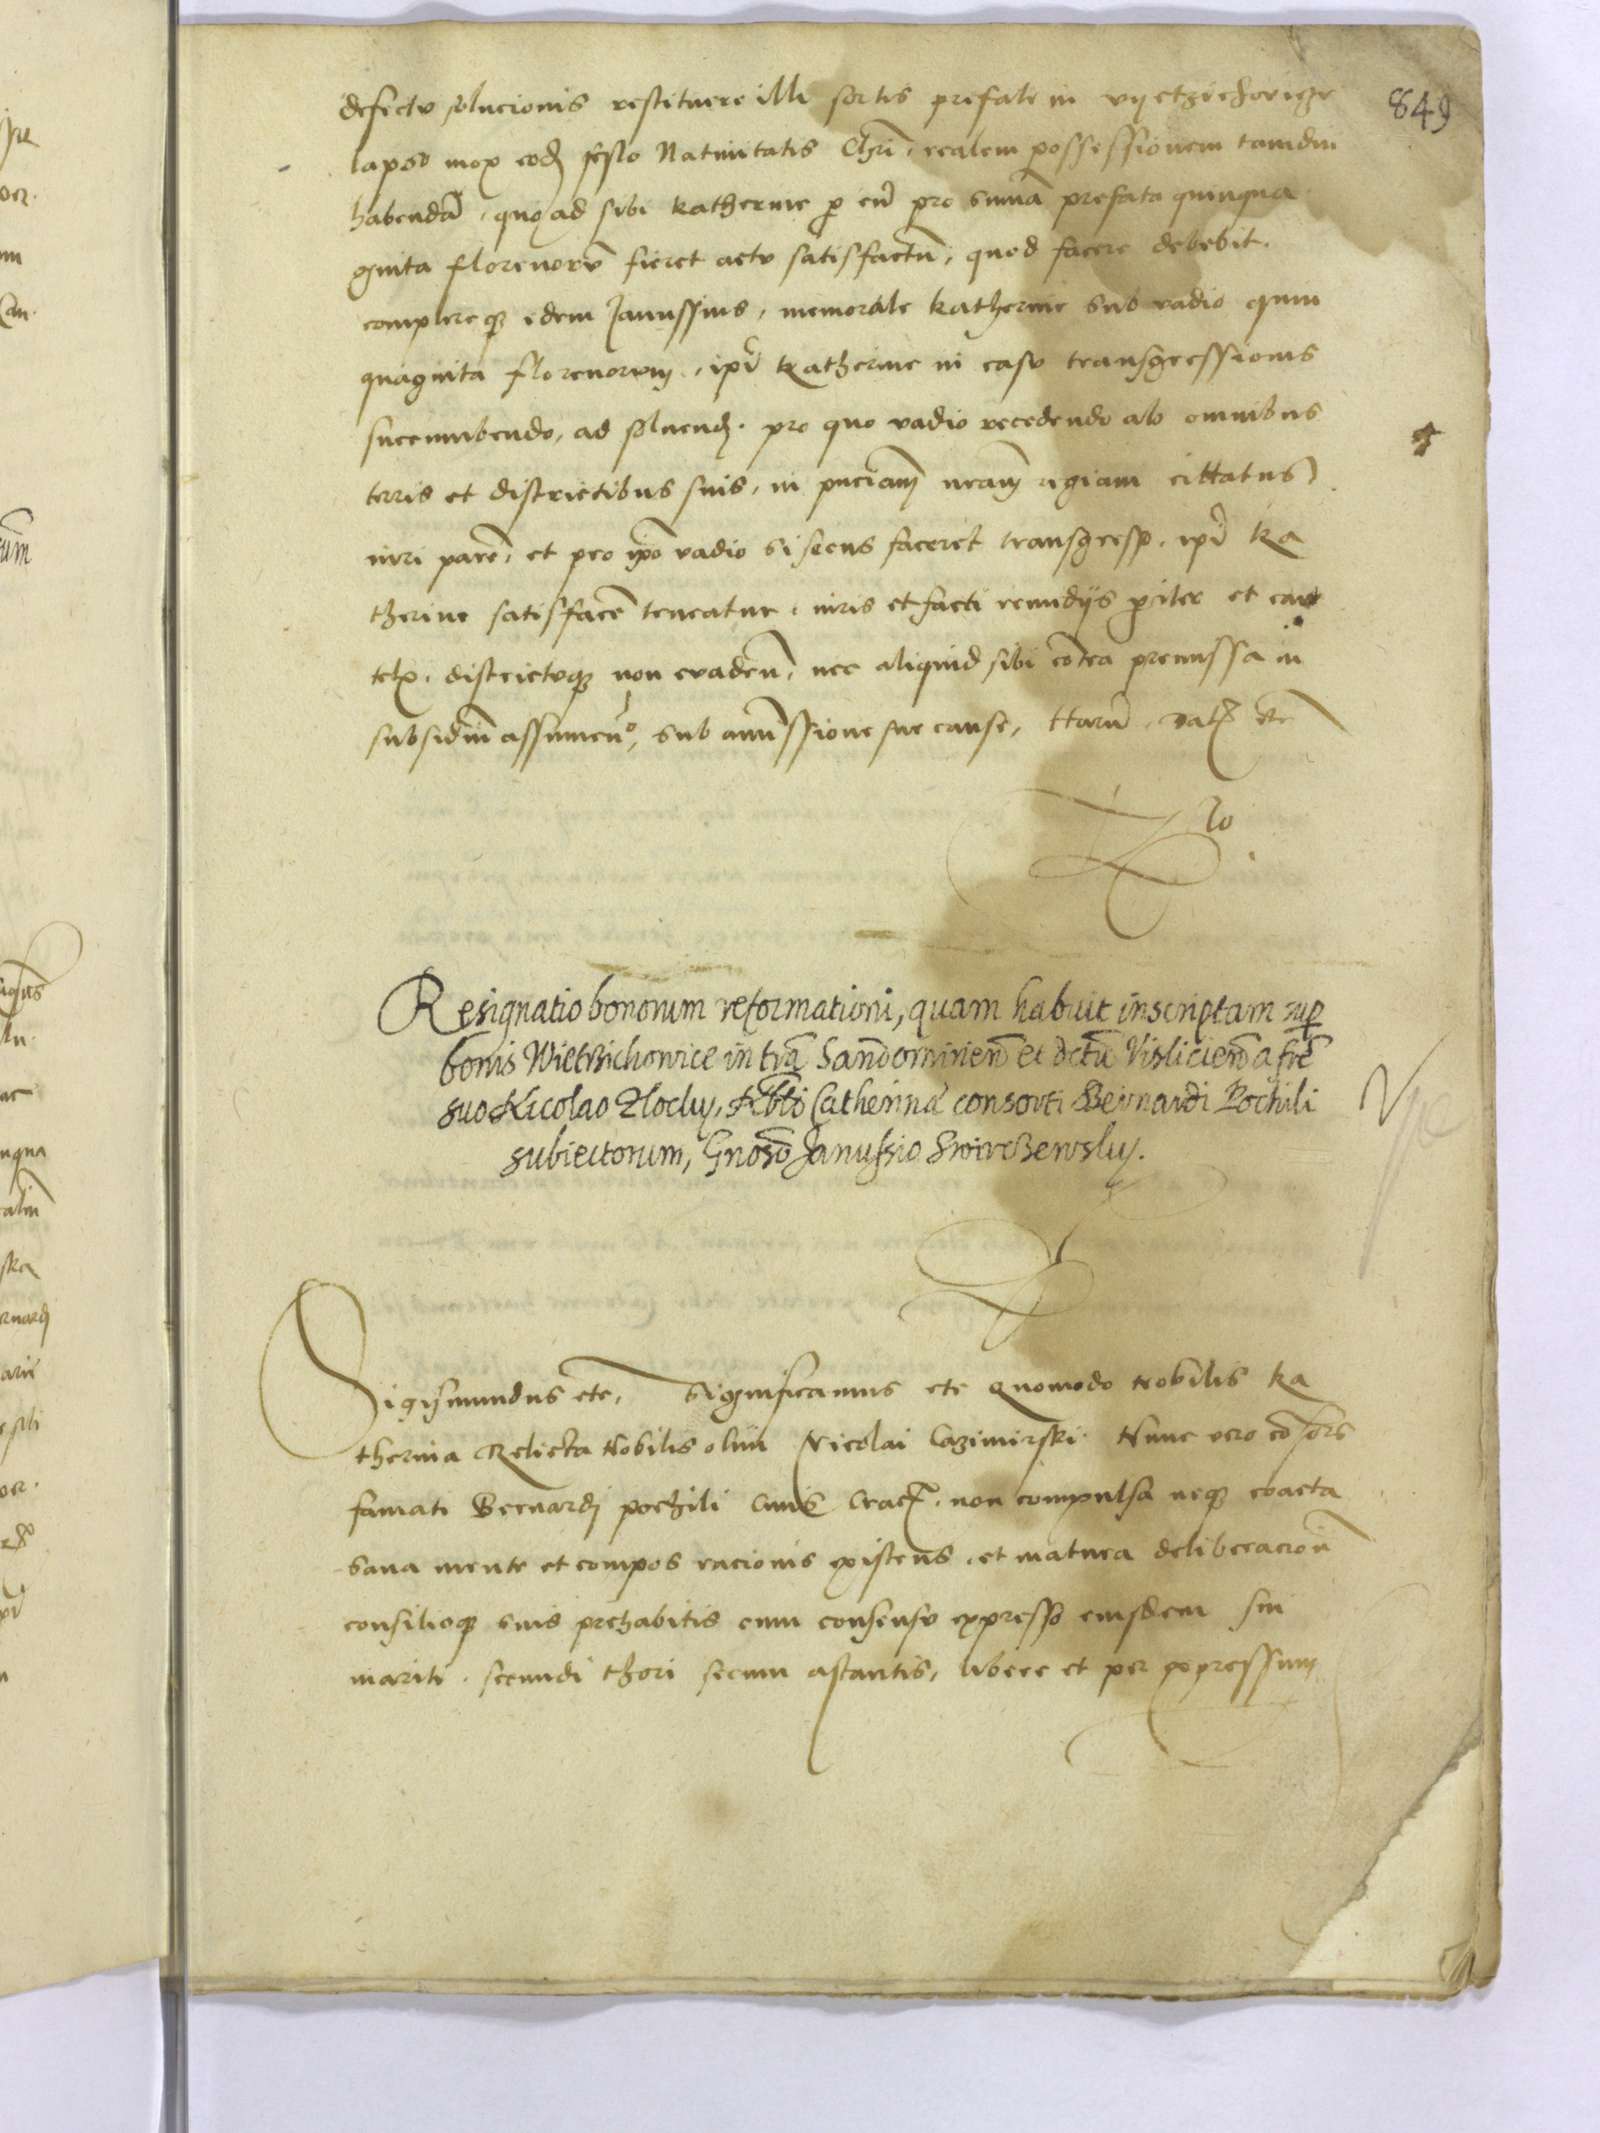 849
defectu solucionis restituere illi sortis prefate in vyetzichovicze
lapso mox eodem festo Natiuitatis Chri, realem possessionem tamdiu
habendā, quo ad sibi katherine p eū pro summa prefata quinqua
ginta florenorū fieret actu satisfactū, quod facere debebit.
complereq; idem Janussius, memorate katherine sub vadio quin
quaginta florenorum, ipi katherine in casu transgressionis
succumbendo, ad soluend. pro quo vadio recedendo ab omnibus
terris et districtibus suis, in pnciam nram regiam cittatus
iuri parē, et pro ipo vadio si secus faceret transgresso, ipi ka
therine satisfacē teneatur, iuris et facti remedys gniter et cau
telis, districtuq; non evadeñ, nec aliquid sibi contra premissa in
subsidiū assumendo, sub amissione sue cause, ttarū, Dat etc
Resignatio bonorum reformationi, quam habuit inscriptam sup
bonis Wietrzichowice in trā Sandomirien et dctu Visliciens a frē
suo Nicolao Zlocky, Nobli Catherinæ consorti Bernardi Pochili
subiectorum, Gnoso Janussio Swirczewsky.
Sigismundus etc, Significamus etc Quomodo Nobilis ka
therina Relicta Nobilis olim Nicolai Cazimirski Nunc vero cosors
famati Bernardj pochili Ciuis Crac, non compulsa neq; coacta
sana mente et compos racionis existens, et matura deliberacioñ
consilioq; suis prehabitis cum consensu expresso eiusdem sui
mariti, secundi thori secum astantis, libere et per expressum